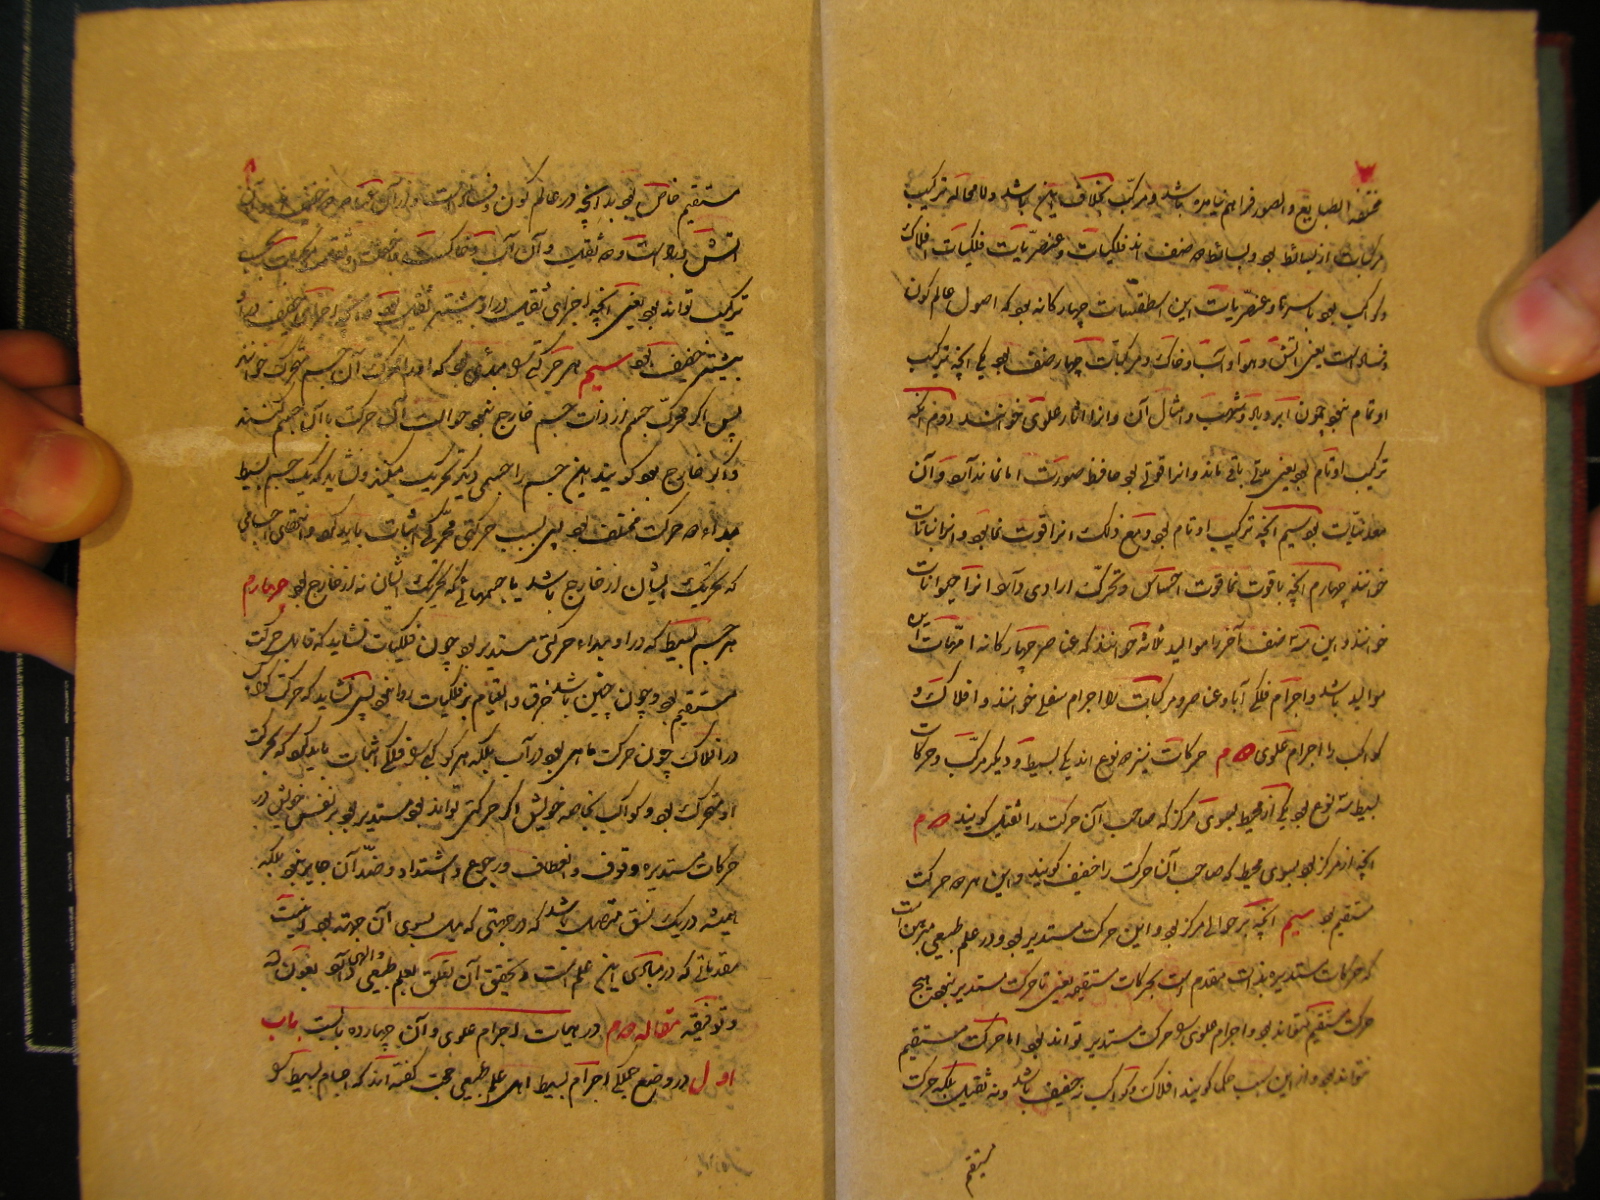 مختلفة الطبایع و الصور فراهم نیامده باشد و مرکّب بخلاف این باشد و لا محاله ترکیب
مرکبات از بسائط بود و بسائط دو صنف اند فلکیات و عنصریات فلکیات افلاک
و کواکب بود باسرها و عنصریات این اسطقسات چهارکانه بود که اصول عالم کون
و فساد است یعنی آتش و هوا و آب و خاک و مرکبات چهار صنف بود یکی آنچه ترکیب
او تمام نبود چون ابر و باد و شهب و امثال آن و انرا اثار علوی خوانند دوم آنکه
ترکیب او تمام بود یعنی مدتی باقی ماند و انرا قوتی بود حافظ صورت اما نما ندارد و آن
معدنیات بود سیم آنچه ترکیب او تمام بود و مع ذلک انرا قوت نما بود و انرا نباتات
خوانند چهارم آنچه با قوت نما قوت احساس و تحرک ارادی دارد انرا حیوانات
خوانند و این سه صنف آخر را موالید ثلاثه خوانند که عناصر چهارکانه امهات این
موالید باشد و اجرام فلکی آبا و عناصر و مرکبات را اجرام سفلی خوانند و افلاک و
کواکب را اجرام علوی دوم حرکات نیز دو نوع اند یکی بسیط و دیکر مرکّب و حرکات
بسیط سه نوع بود یکی از محیط بسوی مرکز که صاحب آن حرکت را ثقیل کویند دوم
آنچه از مرکز بود بسوی محیط که صاحب آن حرکت را خفیف کویند و این هر دو حرکت
مستقیم بود سیم آنچه بر حوالی مرکز بود و این حرکت مستدیر بود و در علم طبیعی مبرهن است
که حرکات مستدیره بذات مقدم است بحرکات مستقیمه یعنی تا حرکت مستدیر نبود هیچ
حرکت مستقیم نتواند بود و اجرام علوی را حرکت مستدیر تواند بود اما حرکت مستقیم
نتواند بود و از این سبب حکما کویند افلاک و کواکب نه خفیف باشد و نه ثقیل بلکه حرکت
مستقیم
مستقیم خاص بود بدانچه در عالم کون و فساد است و از آن عناصر دو خفیف
آتش و هواست و دو ثقیل و آن آب و خاک است و خفت و ثقل مرکبات بحسب
ترکیب تواند بود یعنی آنچه اجزای ثقیل در او بیشتر ثقیل بود و آنچه اجزای خفیف در او
بیشتر خفیف بود سیم هر حرکتی را مبدئی بود که او را محرک آن جسم متحرک خوانند
پس اکر محرک جسم از ذات جسم خارج نبود حوالت آن حرکت با آن جسم کنند
و اکر خارج بود کویند این جسم را جسمی دیکر تحریک میکند و نشاید که یک جسم بسیط
مبداء دو حرکت مختلف بود پس بسبب حرکتی محرکی اثبات باید کرد و انقضای اجسامی
که تحریک ایشان از خارج باشد با جسمهائی که تحریک ایشان نه از خارج بود چهارم
هر جسم بسیط که در او مبداء حرکتی مستدیر بود چون فلکیات نشاید که قابل حرکت
مستقیم بود و چون چنین باشد خرق و التیام بر فلکیات روا نبود پس نشاید که حرکت کواکب
در افلاک چون حرکت ماهی بود در آب بلکه هر کوکبی را فلکی اثبات باید کرد که بحرکت
او متحرک بود و کواکب بخاصه خویش اکر حرکتی تواند بود مستدیر بود بر نفس خویش و در
حرکات مستدیره وقوف و انعطاف و رجوع و اشتداد و ضدّ آن جایز نبود بلکه
همیشه در یک نسق متصل باشد که در جهتی که میل بسوی آن جهته بود اینست
مقدماتی که در مبادی این علم است و تحقیق آن تعلق بعلم طبیعی و الهی دارد بعون الله
و توفیقه مقاله دوم در هیات اجرام علوی و آن چهارده بابست باب
اول در وضع جملکی اجرام بسیط اهل علم طبیعی حجت کفته اند که اجسام بسیط کو